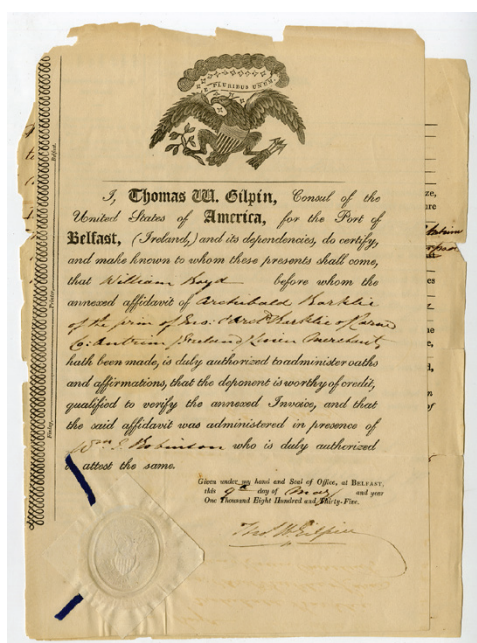 E PLURIBUS UNUM
I, Thomas W. Gilpin, Consul of the
United States of America, for the Port of
Belfast, (Ireland,) and its dependencies, do certify,
and make known to whom these presents shall come,
that William Boyd before whom the
annexed affidavit of Archibald Barklie
of the firm of Geo. & Archd Barklie of Larne
Co. Antrim Ireland Linen Merchant,
hath been made, is duly authorized to administer oaths
and affirmations, that the deponent is worthy of credit,
qualified to verify the annexed Invoice, and that
the said affidavit was administered in presence of
Wm J. Robinson who is duly authorized
to attest the same.
Given under my hand and Seal of Office, at BELFAST,
this 9th day of May and year
One Thousand Eight Hundred and Thirty-Five.
Thos W Gilpin
Finlay, Printer, Belfast.